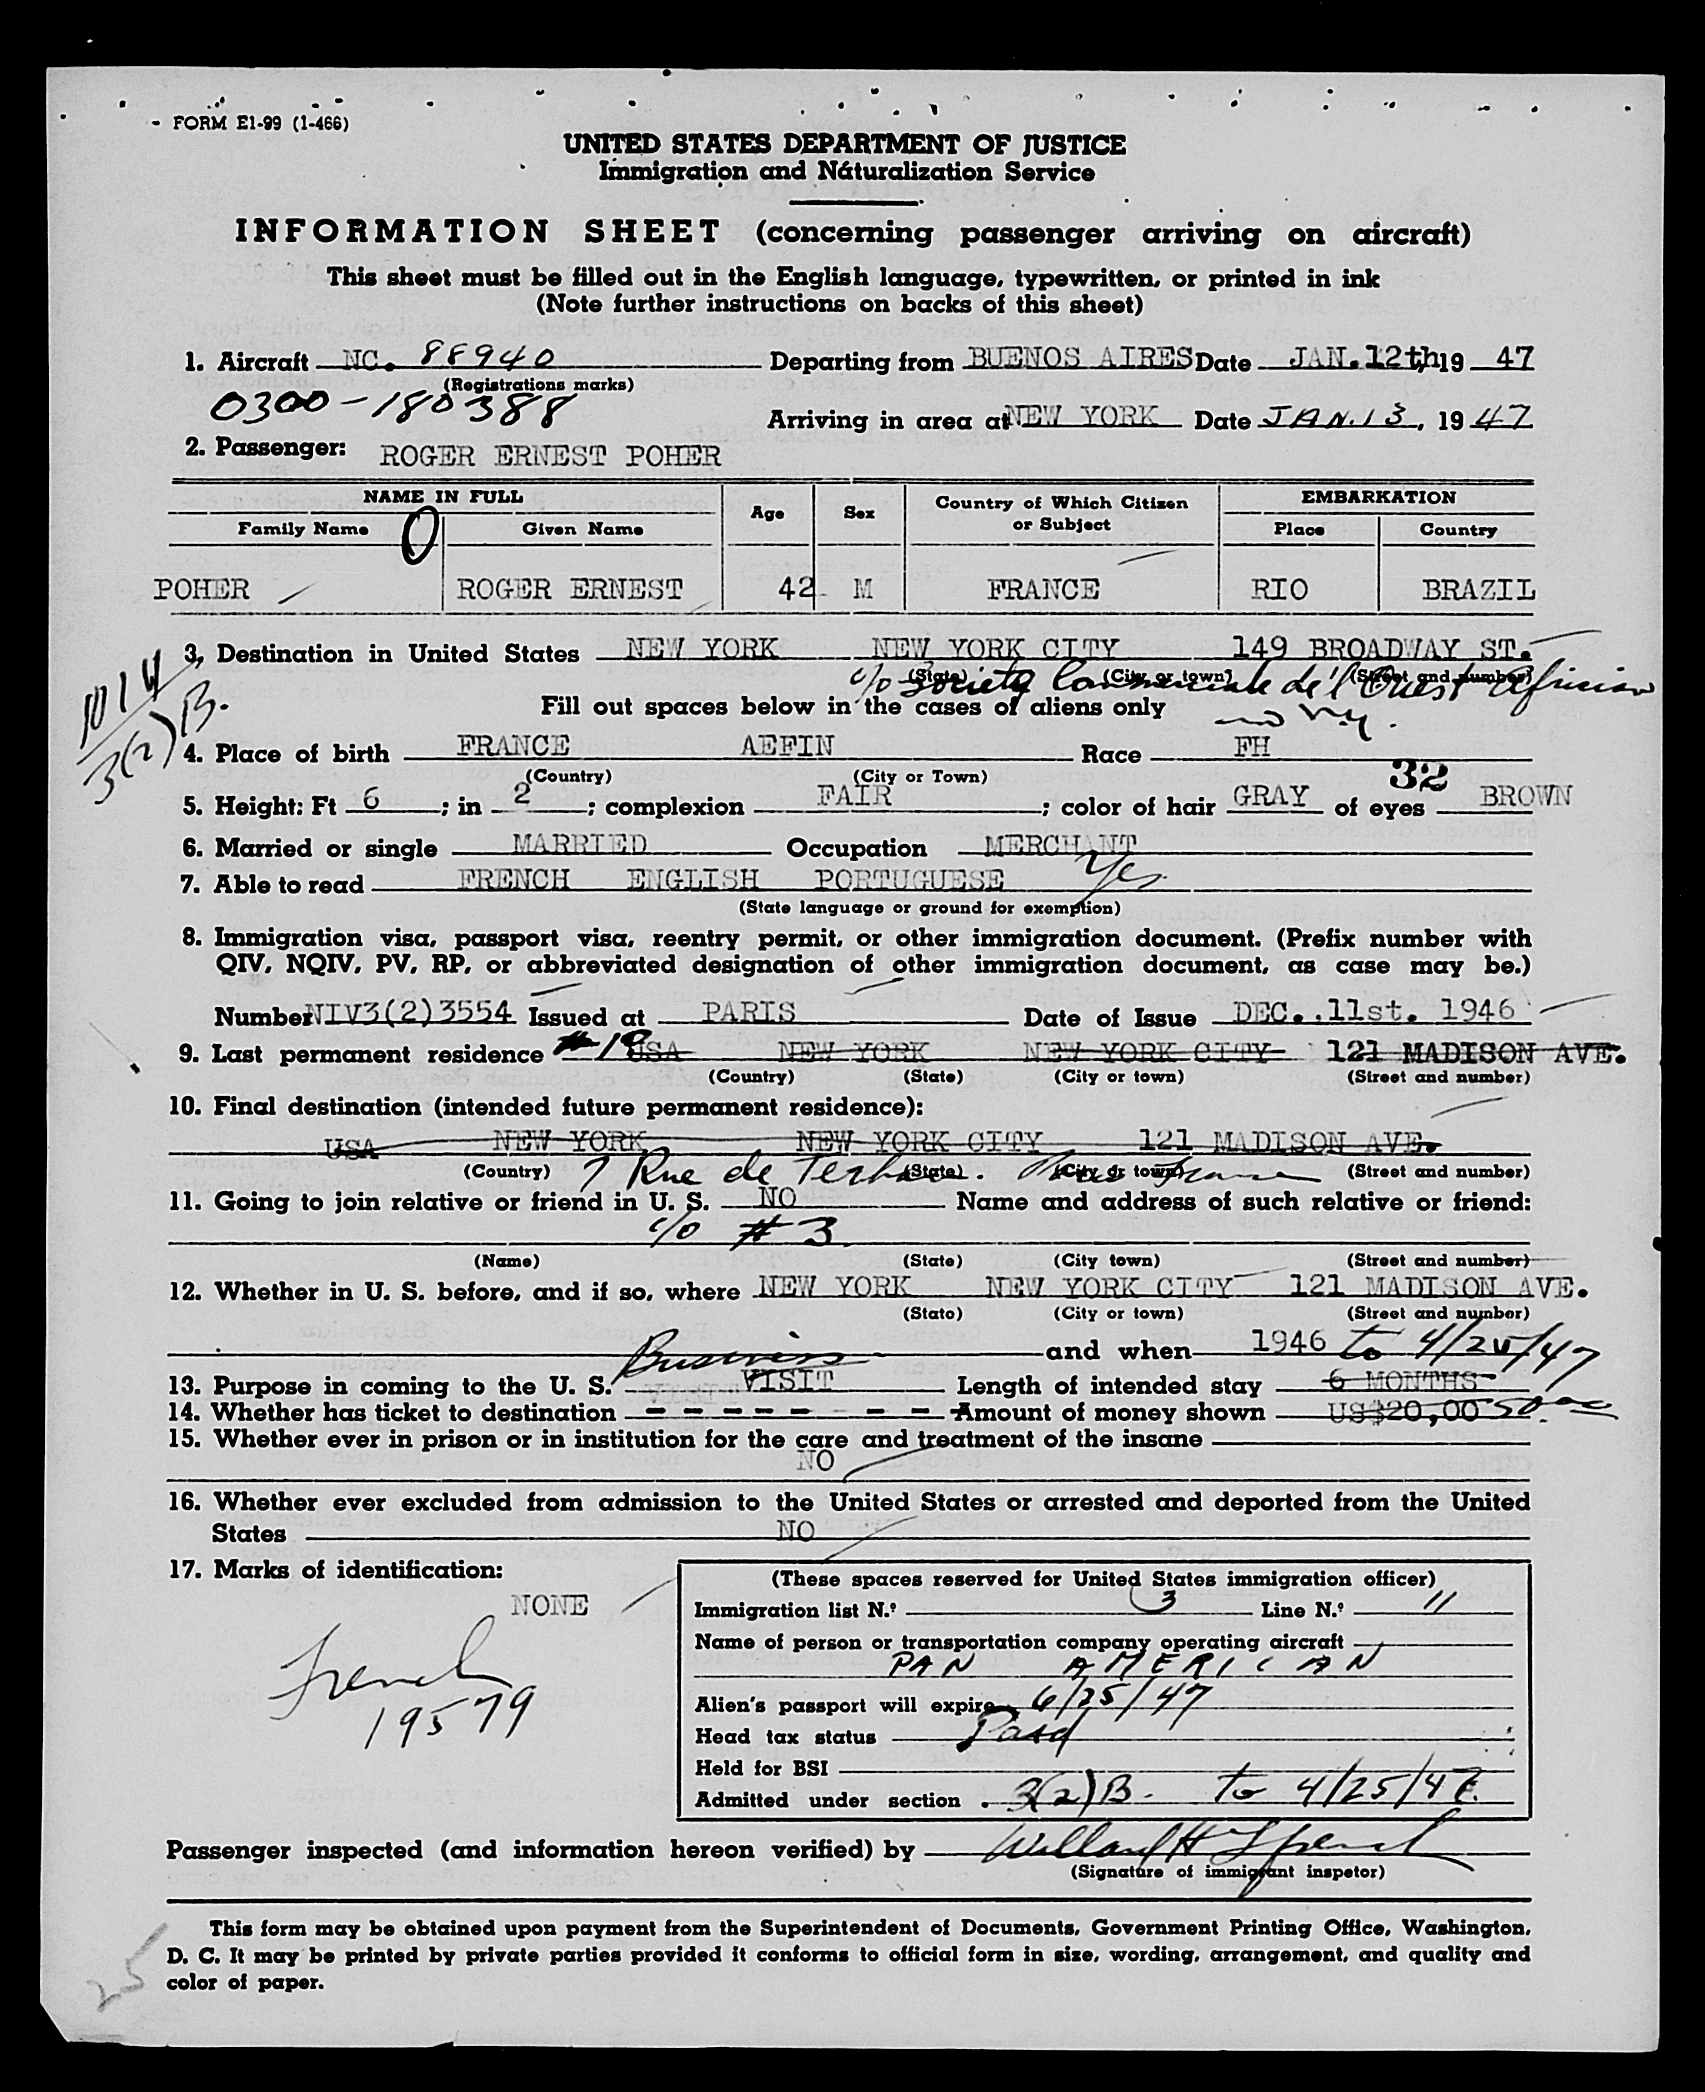 FORM E1-99 (1-466)
UNITED STATES DEPARTMENT OF JUSTICE
Immigration and Naturalization Service
INFORMATION SHEET (concerning passenger arriving on aircraft)
This sheet must be filled out in the English language, typewritten, or printed in ink
(Note further instructions on backs of this sheet)
1. Aircraft NC. 88940 Departing from BUENOS AIRES Date JAN. 12th, 19 47
(Registrations marks)
0300-180388
Arriving in area at NEW YORK Date JAN. 13, 19 47
2. Passenger: ROGER ERNEST POHER
NAME IN FULL Age Sex Country of Which Citizen or Subject EMBARKATION
Family Name Given Name Place Country
POHER ROGER ERNEST 42 M FRANCE RIO BRAZIL
3, Destination in United States NEW YORK NEW YORK CITY 149 BROADWAY ST.
(State) (City or town) (Street and number)
c/o Society Commerciale de l'Ouest Africian
Fill out spaces below in the cases of aliens only
N.Y.
1014
3(2)B.
4. Place of birth FRANCE AEFIN Race FH
(Country) (City or Town)
32
5. Height: Ft 6; in 2; complexion FAIR; color of hair GRAY of eyes BROWN
6. Married or single MARRIED Occupation MERCHANT
7. Able to read FRENCH ENGLISH PORTUGUESE Yes
(State language or ground for exemption)
8. Immigration visa, passport visa, reentry permit, or other immigration document. (Prefix number with
QIV, NQIV, PV, RP, or abbreviated designation of other immigration document, as case may be.)
Number NIV3(2)3554 Issued at PARIS Date of Issue DEC..11st. 1946
9. Last permanent residence #10 USA NEW YORK NEW YORK CITY 121 MADISON AVE.
(Country) (State) (City or town) (Street and number)
10. Final destination (intended future permanent residence):
USA NEW YORK NEW YORK CITY 121 MADISON AVE.
(Country) (State) (City or town) (Street and number)
7 Rue de France
11. Going to join relative or friend in U. S. NO Name and address of such relative or friend:
c/o #3
(Name) (State) (City town) (Street and number)
12. Whether in U. S. before, and if so, where NEW YORK NEW YORK CITY 121 MADISON AVE.
(State) (City or town) (Street and number)
and when 1946
Business to 4/25/47
13. Purpose in coming to the U. S. VISIT Length of intended stay 6 MONTHS
14. Whether has ticket to destination - - - - - - - - Amount of money shown US$20,00 50.00
15. Whether ever in prison or in institution for the care and treatment of the insane
NO
16. Whether ever excluded from admission to the United States or arrested and deported from the United
States NO
17. Marks of identification:
NONE
French
19579
(These spaces reserved for United States immigration officer)
Immigration list N.º 3 Line N.º 11
Name of person or transportation company operating aircraft
PAN AMERICAN
Alien's passport will expire 6/25/47
Head tax status Paid
Held for BSI
Admitted under section . 3(2)B. to 4/25/47.
Passenger inspected (and information hereon verified) by Willard H French
(Signature of immigrant inspetor)
This form may be obtained upon payment from the Superintendent of Documents, Government Printing Office, Washington,
D. C. It may be printed by private parties provided it conforms to official form in size, wording, arrangement, and quality and
color of paper.
25